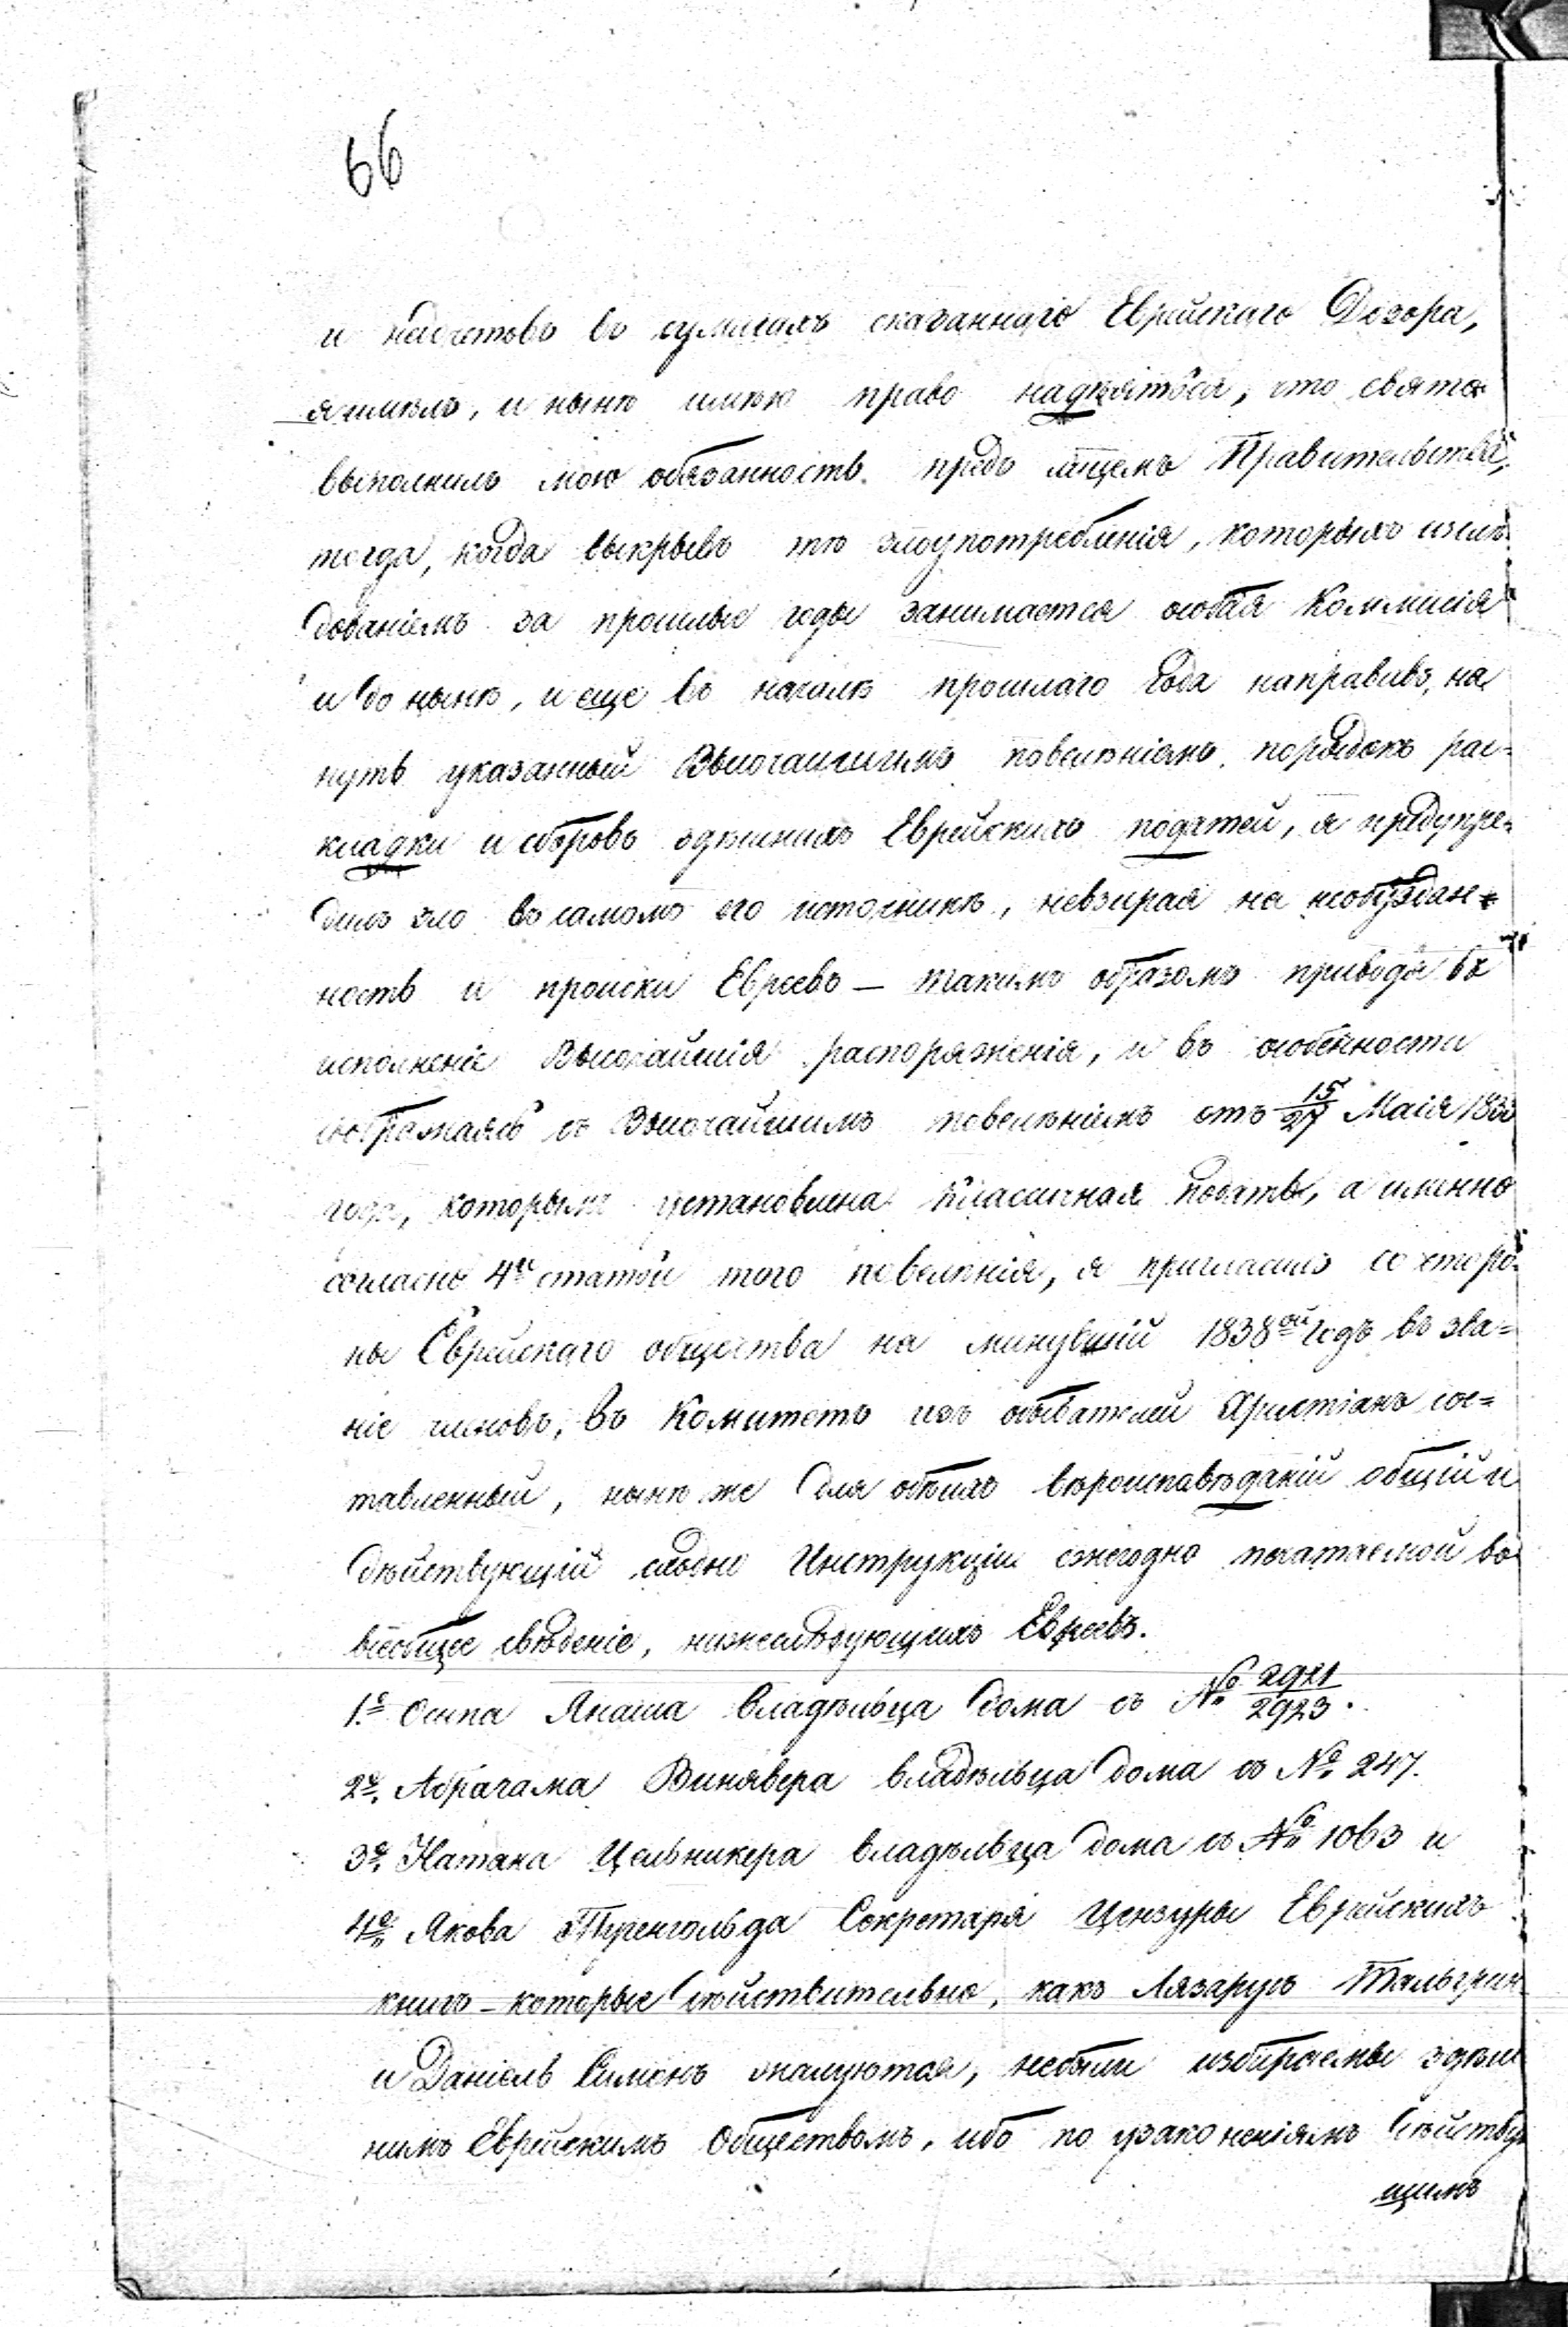 66
и надчетовъ въ суммахъ сказаннаго Еврейскаго Дозора,
я имѣлъ, и нынѣ имѣю право надѣяться, что свято
выполнилъ мою обязанность предъ лицемъ Правительства,
тогда, когда выкрывъ тѣ злоупотребленія, которыхъ изслѣ-
дованіемъ за прошлые годы занимается особая Коммисія
и до нынѣ, и еще въ началѣ прошлаго года направивъ, на
путь указанный Высочайшимъ повелѣніемъ порядокъ рас=
кладки и сборовъ здѣшнихъ Еврейскихъ податей, я предупре=
дилъ зло въ самомъ его источникѣ, невзирая на необуздан=
ность и происки Евреевъ — такимъ образомъ приводя въ
исполненіе Высочайшія распоряженія, и въ особенности
сображаясь съ Высочайшимъ повелѣніемъ отъ 15/27 Маія 183
года, которымъ установлена Классичная подать, а именно
согласно 4й статьи того повелѣнія, я пригласилъ со сторо-
ны Еврейскаго общества на минувшій 1838ой годъ въ зва=
ніе членовъ, въ Комитетъ изъ обывателей Христіанъ сос=
тавленный, нынѣ же для обѣихъ вѣроисповѣданій общій и
дѣйствующій Инструкціи ежегодно печатаемой во
всеобщее свѣденіе, нижеслѣдующихъ Евреевъ.
1.е Осипа Янаша владѣльца дома съ № 2921/2923.
2е. Абрагама Винявера владѣльца дома съ № 247.
3е. Натана Цельникера владѣльца дома съ № 1063 и
4е. Якова Тугенгольда Секретаря Цензуры Еврейскихъ
книгъ – которые дѣйствительно, какъ Лязарусъ
и Даніель Симонъ жалуются, небыли избираемы здѣш
нимъ Еврейскимъ Обществомъ, ибо по узаконеніямъ дѣйству
щимъ